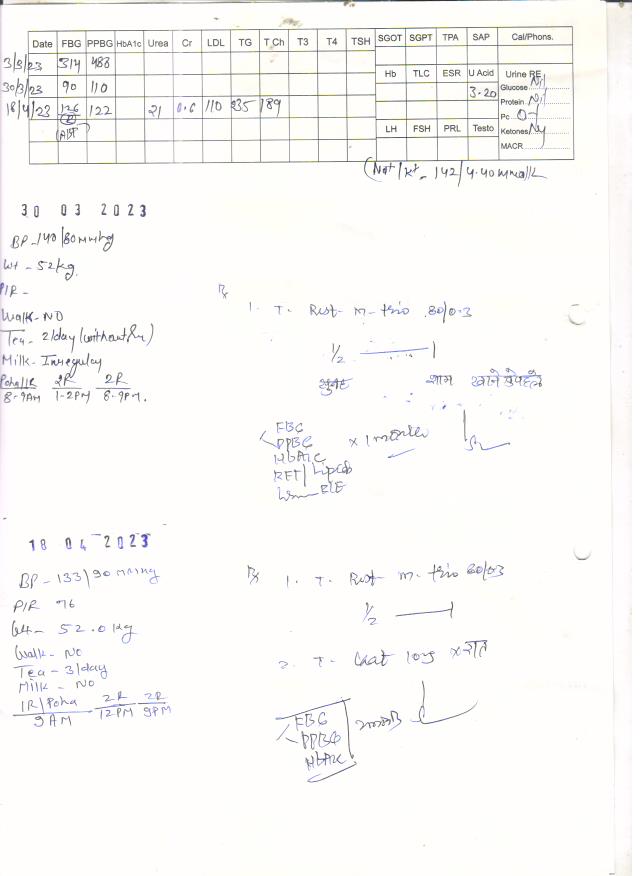 Date FBG PPBG HbA1c Urea Cr LDL TG T Ch T3 T4 TSH SGOT SGPT TPA SAP Cal/Phons.
3/3/23 314 488
Hb TLC ESR U Acid Urine RE
30/3/23 90 110
3.20 Glucose Nil
18/4/23 126 122 21 0.6 110 235 189
Protein Nil
Pc 0-1
LH FSH PRL Testo Ketones
MACR
Na+/K+ - 142/4.40 mmol/L
30 03 2023
BP - 140/80 mmHg
Wt - 52 kg
P/R -
Walk - NO
Tea - 2/day (without
Milk - Irregular
Poha/1R 2R 2R
8-9AM 1-2PM 8-9PM.
Rx
1. T. M-trio 80/0.3
1/2 1
सुबह शाम खाने से पहले
FBG
PPBG x 1 month
HbA1c
RFT/Lipid
18 04 2023
BP - 133/90 mmHg
P/R 76
Wt - 52.0 kg
Walk - NO
Tea - 3/day
Milk - NO
1R/Poha 2R 2R
9AM 12PM 9PM
Rx 1. T. M-trio 80/03
1/2 1
2. T. 10mg x रात
FBG
PPBG
HbA1c